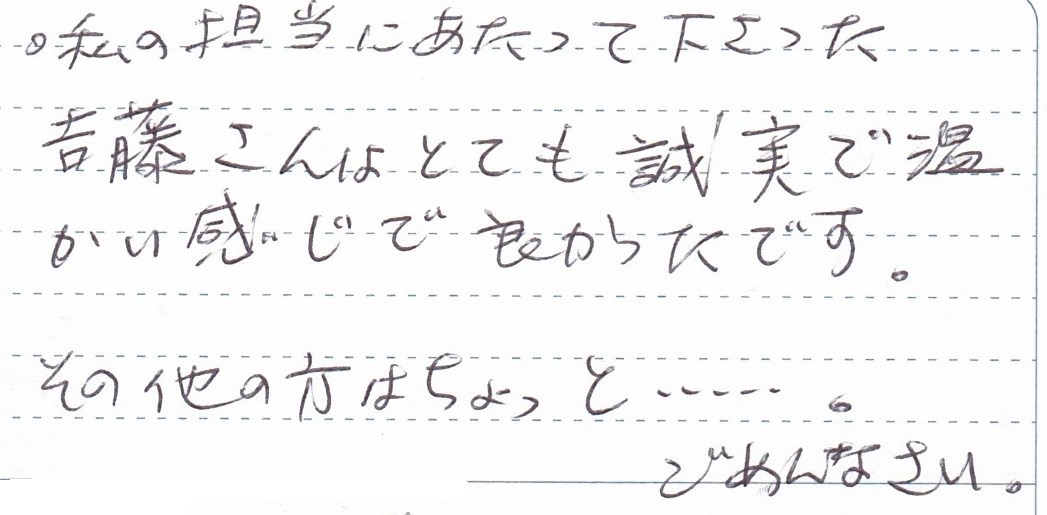 。私の担当にあたって下さった
吉藤さんはとても誠実で温
かい感じで良かったです。
その他の方はちょっと……。
ごめんなさい。